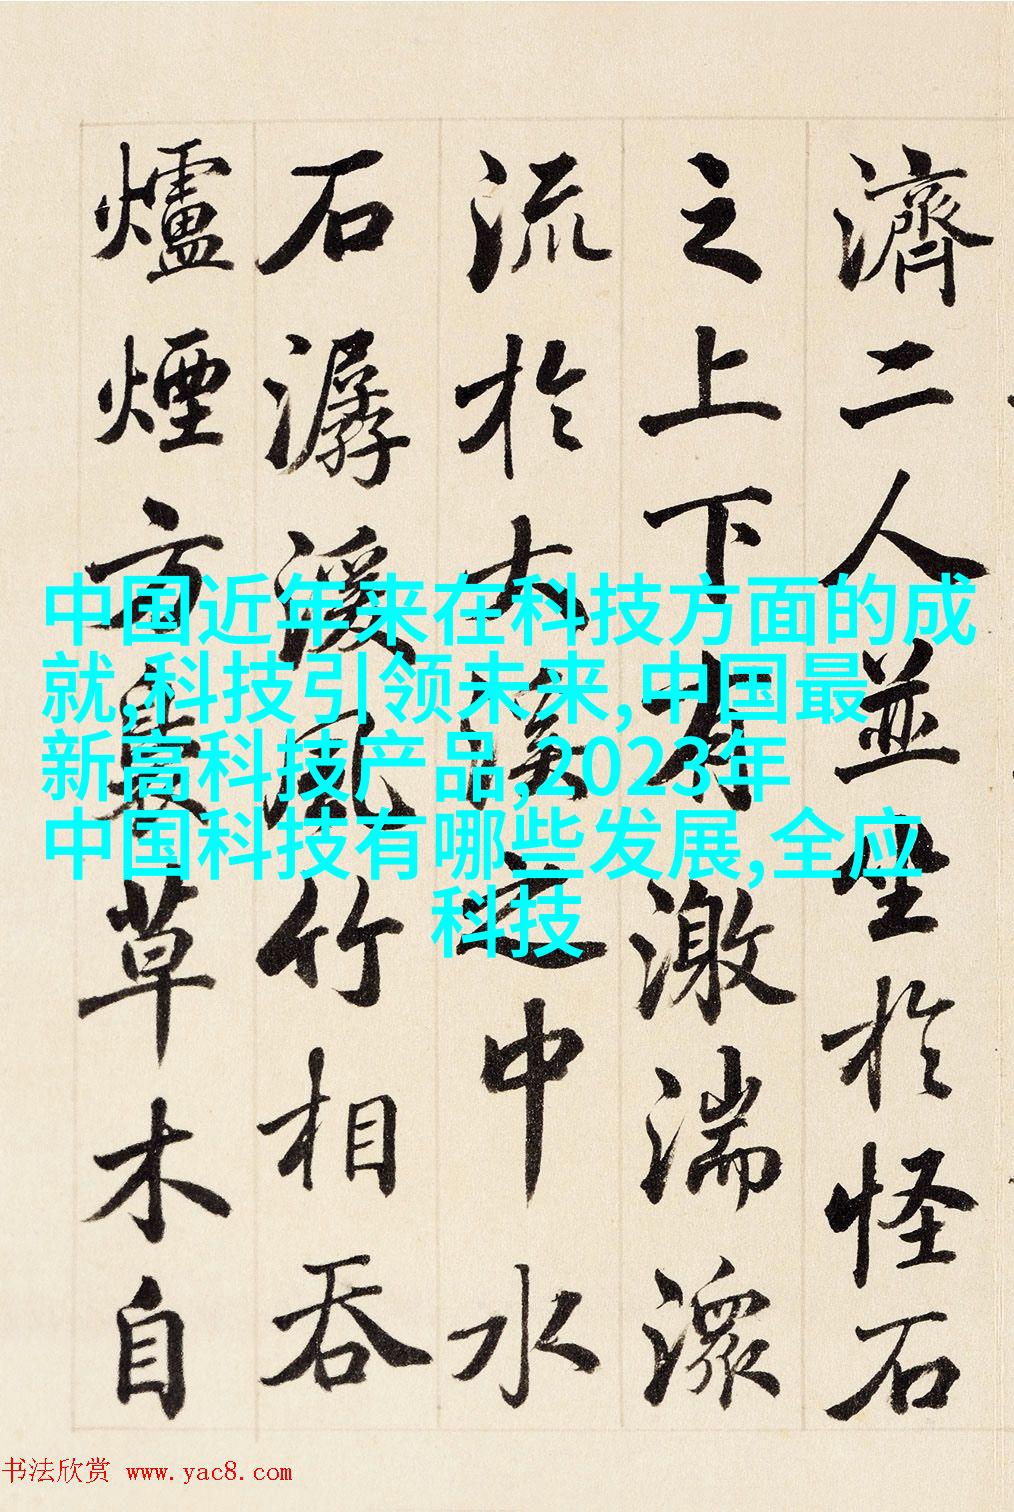 濟二人並坐於怪石
之上下有激湍潀
流於大溪之中水
石潺湲風竹相吞
爐煙方裊草木自
中国近年来在科技方面的成
就,科技引领未来,中国最
新高科技产品,2023年
中国科技有哪些发展,全应
科技
书法欣赏 www.yac8.com